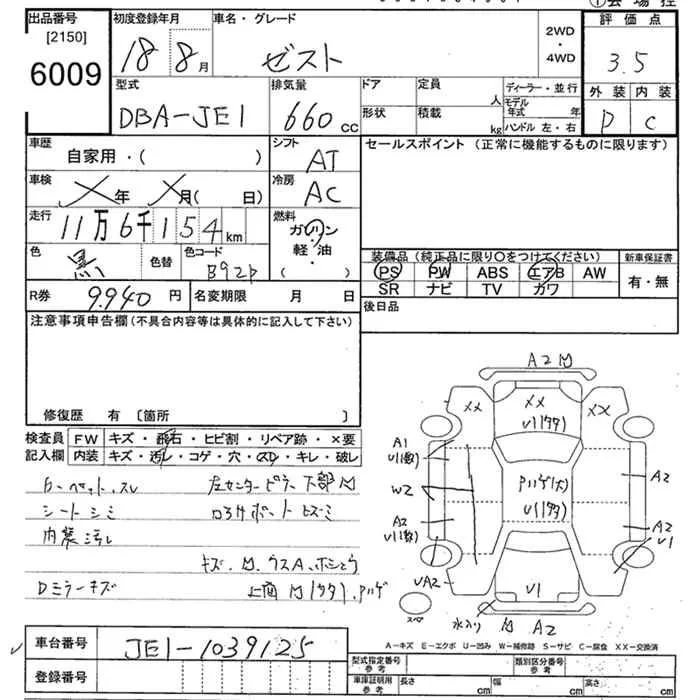 出品番号 初度登録年月 車名・グレード 2WD・4WD 評価点
[2150]
6009 18 8月 ゼスト 3.5
型式 排気量 ドア 定員 人 ディーラー・並行 外装 内装
DBA-JE1 660cc 形状 積載 kg モデル年式 年 ハンドル 左・右 D C
車歴 自家用・( ) シフト AT セールスポイント (正常に機能するものに限ります)
車検 年 月( 日) 冷房 AC
走行 11万6千154km 燃料 ガソリン・軽油( )
色 黒 色替 色コード B92P 装備品 (純正品に限り〇をつけてください) 新車保証書
PS PW ABS エアB AW 有・無
SR ナビ TV カワ
R券 9.940円 名変期限 月 日 後日品
注意事項申告欄 (不具合内容等は具体的に記入して下さい)
修復歴 有 [箇所 ]
検査員 FW キズ・飛石・ヒビ割・リペア跡・×要
記入欄 内装 キズ・汚レ・コゲ・穴・スレ・キレ・破レ
シートシミ
内装汚レ
Dミラーキズ
A2
XX XX XX
A1
W2
A2
A2
A2
U1
UA2
U1
A2
スペア
A-キズ E-エクボ U-凹み W-補修跡 S-サビ C-腐食 XX-交換済
車台番号 JE1-1039125 型式指定番号 参考 類別区分番号 参考
登録番号 車庫証明用 参考 長さ cm 幅 cm 高さ cm